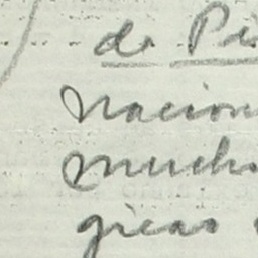 de Pi
nacion
mucho
gicas